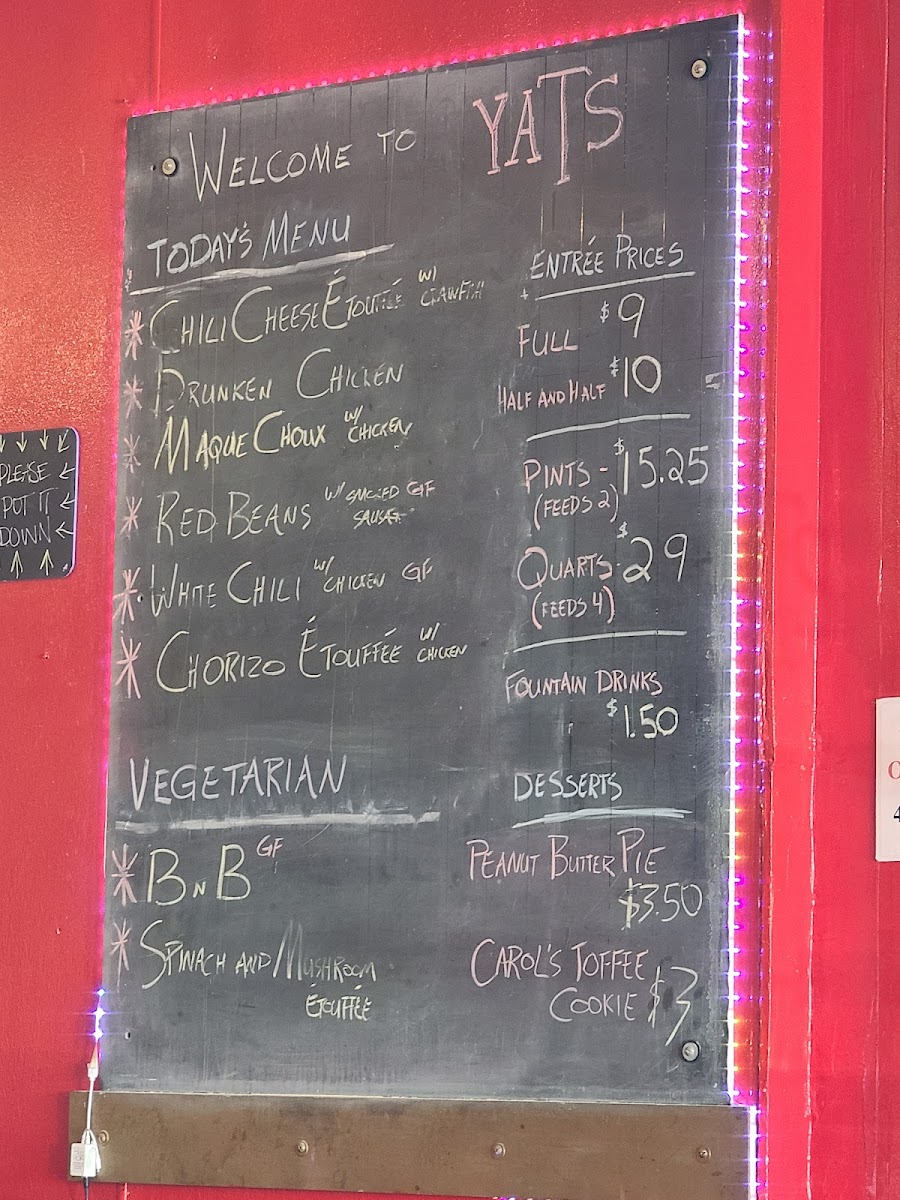 WELCOME TO YATS
TODAY'S MENU
* CHILI CHEESE ÉTOUFFÉE W/ CRAWFISH
* DRUNKEN CHICKEN
* MAQUE CHOUX W/ CHICKEN
* RED BEANS W/ SMOKED SAUSAGE GF
* WHITE CHILI W/ CHICKEN GF
* CHORIZO ÉTOUFFÉE W/ CHICKEN
VEGETARIAN
* B N B GF
* SPINACH AND MUSHROOM
ÉTOUFFÉE
ENTRÉE PRICES
FULL $9
HALF AND HALF $10
PINTS - $15.25
(FEEDS 2)
QUARTS - $29
(FEEDS 4)
FOUNTAIN DRINKS
$1.50
DESSERTS
PEANUT BUTTER PIE
$3.50
CAROL'S TOFFEE
COOKIE $3
PLEASE
PUT IT
DOWN